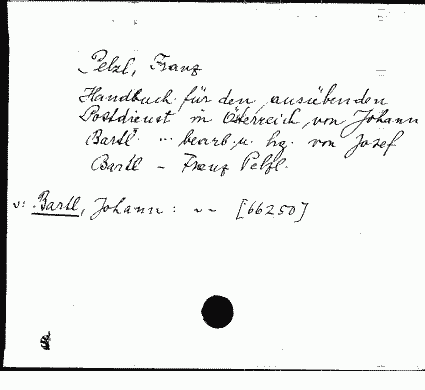 Pelzl, Franz
Handbuch für den ausübenden
Postdienst in Österreich, von Johann
Bartl. .. bearb. u. hg. von Josef
Bartl – Franz Pelzl.
v: Bartl, Johann: -- [66250]